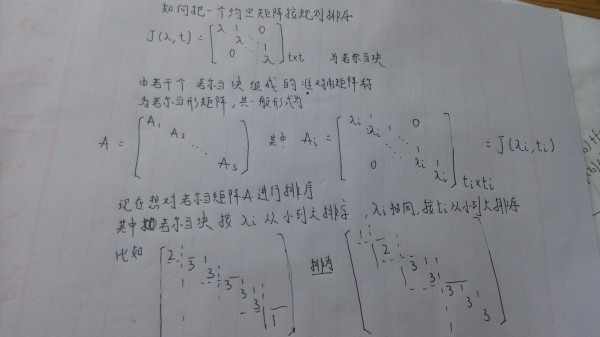 如何把一个约旦矩阵按规则排序
J(λ,t) = [λ 1 0 ⋱ ⋱ 1 0 λ] t×t 为若尔当块
由若干个若尔当块组成的准对角矩阵称
为若尔当形矩阵,其一般形式为
A = [A₁ A₂ ⋱ As] 其中 Ai = [λi 1 λi ⋱ 0 ⋱ ⋱ 0 λi 1 λi] ti×ti = J(λi,ti)
现在想对若尔当矩阵A进行排序
其中 若尔当块按λi从小到大排序,λi相同,按ti从小到大排序
比如 [2 3 1 3 3 1 3 1] 排为 [1 2 3 1 3 3 1 3]